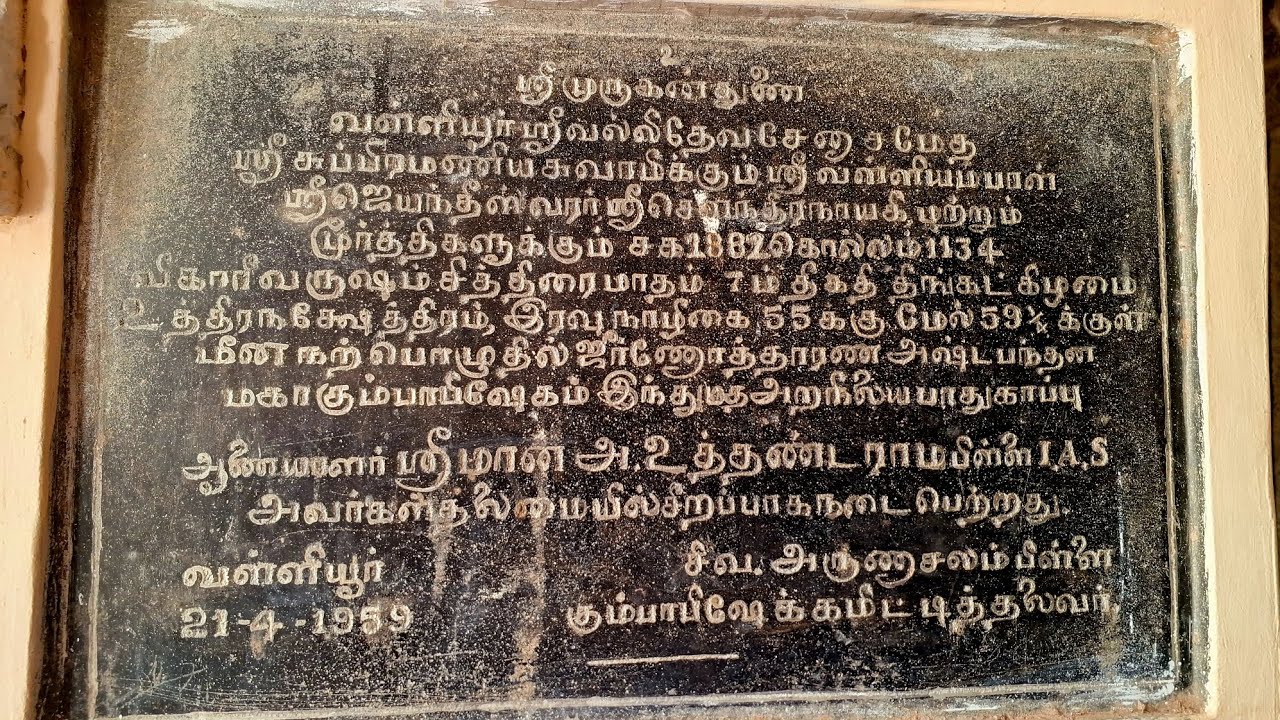 உ
ஸ்ரீ முருகன் துணை
வள்ளியூர் ஸ்ரீ வல்லி தேவசேனா சமேத
ஸ்ரீ சுப்பிரமணிய சுவாமிக்கும் ஸ்ரீ வள்ளியம்பாள்
ஸ்ரீ ஜெயந்தீஸ்வரர் ஸ்ரீ சௌந்தரநாயகி மற்றும்
மூர்த்திகளுக்கும் சக 1882 கொல்லம் 1134
விகாரி வருஷம் சித்திரை மாதம் 7ம் திகதி திங்கட்கிழமை
உத்திர நக்ஷேத்திரம், இரவு நாழிகை 55க்கு மேல் 59¼க்குள்
மீன நற்பொழுதில் ஜீர்ணோத்தாரண அஷ்டபந்தன
மகா கும்பாபிஷேகம் இந்துமத அறநிலய பாதுகாப்பு
ஆணையாளர் ஸ்ரீமான் அ. உத்தண்டராம பிள்ளை I.A.S
அவர்கள் தலைமையில் சிறப்பாக நடைபெற்றது.
வள்ளியூர் சிவ. அருணாசலம் பிள்ளை
21-4-1959 கும்பாபிஷேக்கமிட்டித்தலைவர்.